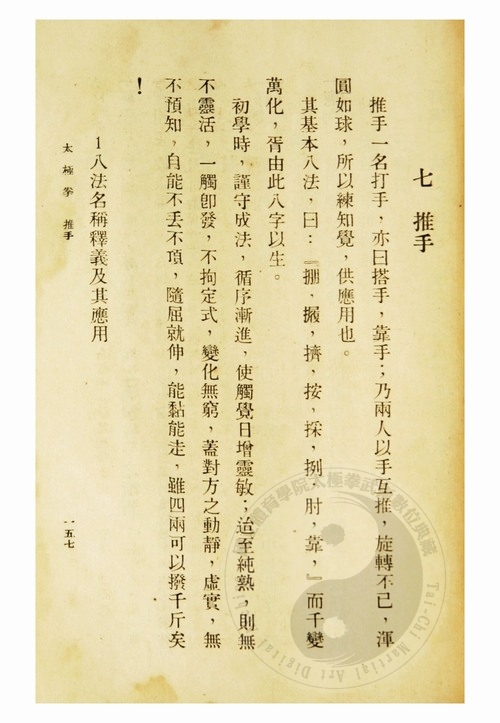 七 推手
推手一名打手，亦曰搭手，靠手；乃兩人以手互推，旋轉不已，渾
圓如球，所以練知覺，供應用也。
其基本八法，曰：『掤，攦，擠，按，採，挒，肘，靠，』而千變
萬化，胥由此八字以生。
初學時，謹守成法，循序漸進，使觸覺日增靈敏；迨至純熟，則無
不靈活，一觸卽發，不拘定式，變化無窮，蓋對方之動靜，虛實，無
不預知，自能不丟不頂，隨屈就伸，能黏能走，雖四兩可以撥千斤矣
！
1八法名稱釋義及其應用
太極拳 推手
一五七
體育學院太極拳武術數位典藏
Tai-Chi Martial Art Digital